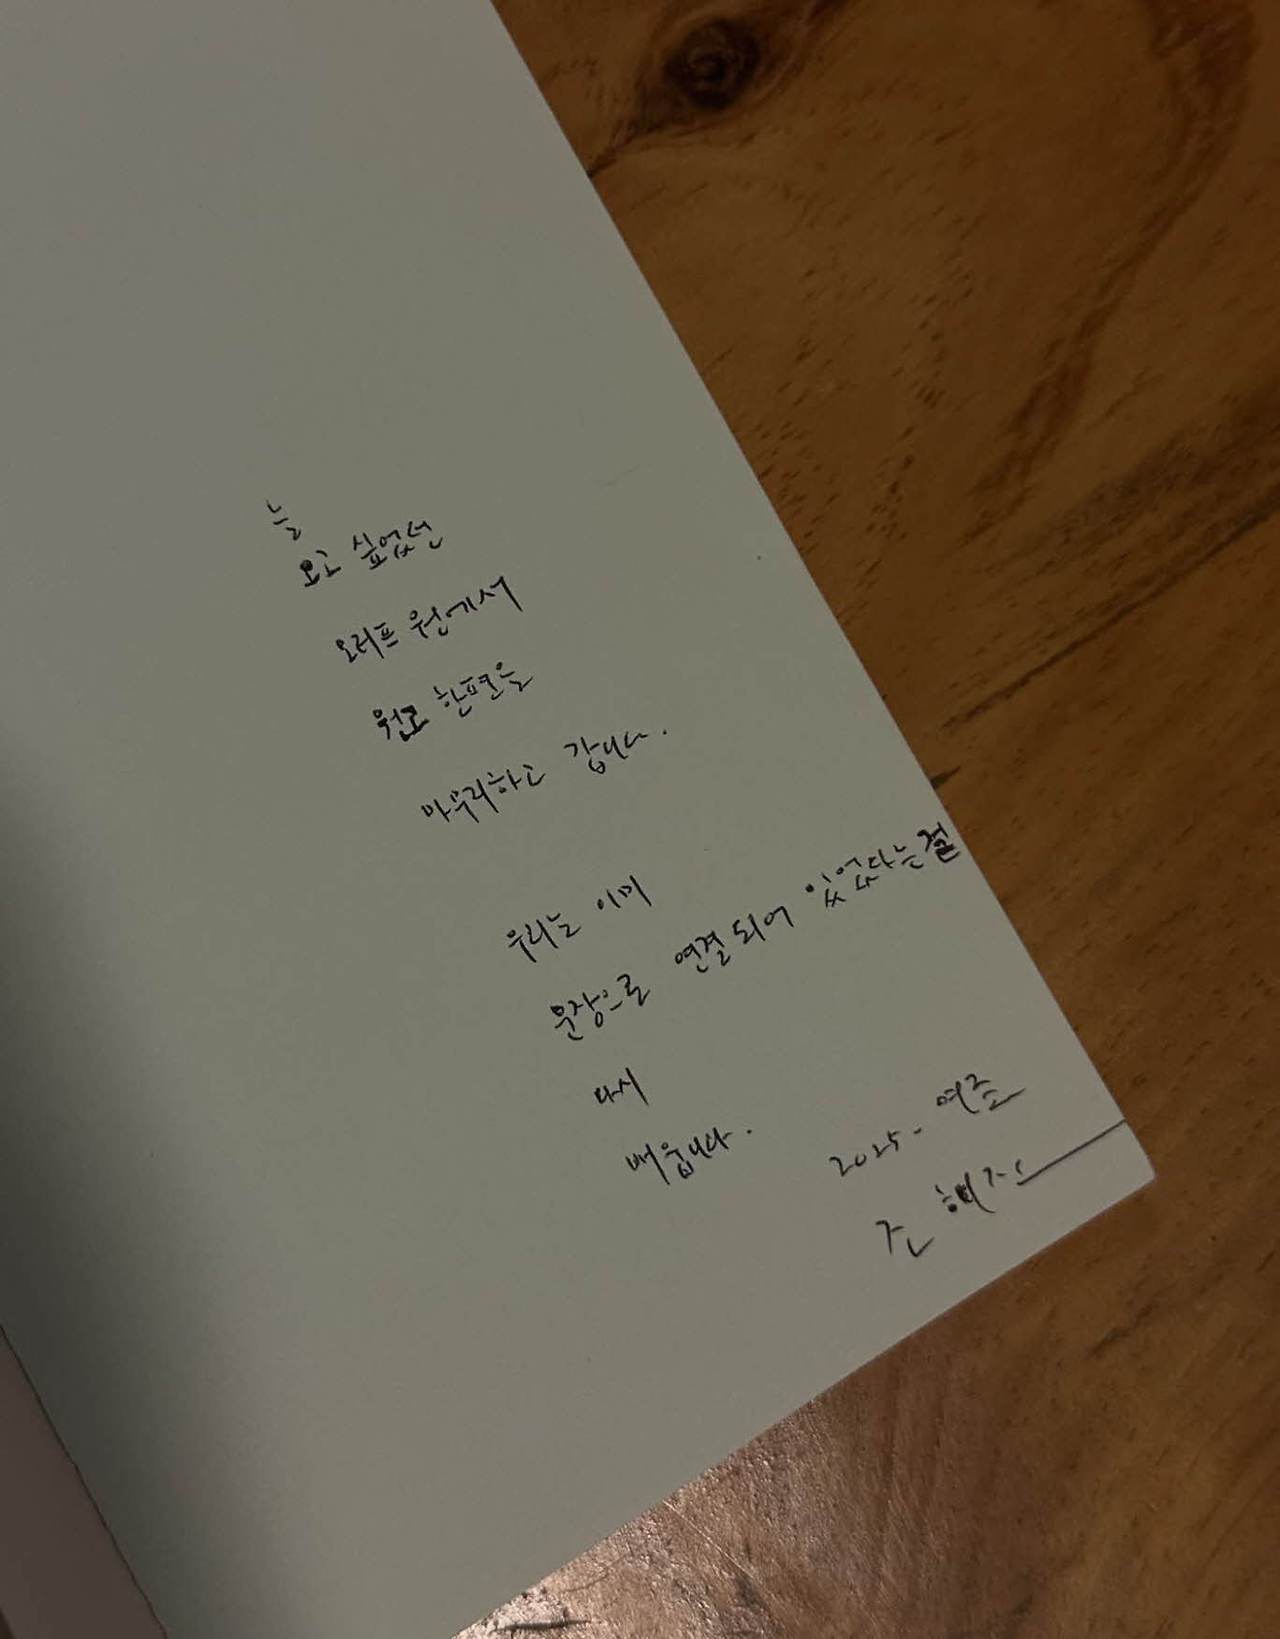 늘
오고 싶었던
오러프 원에서
원고 한편을
마무리하고 갑니다.
우리는 이미
문장으로 연결되어 있었다는 걸
다시
배웁니다.
2025-여름